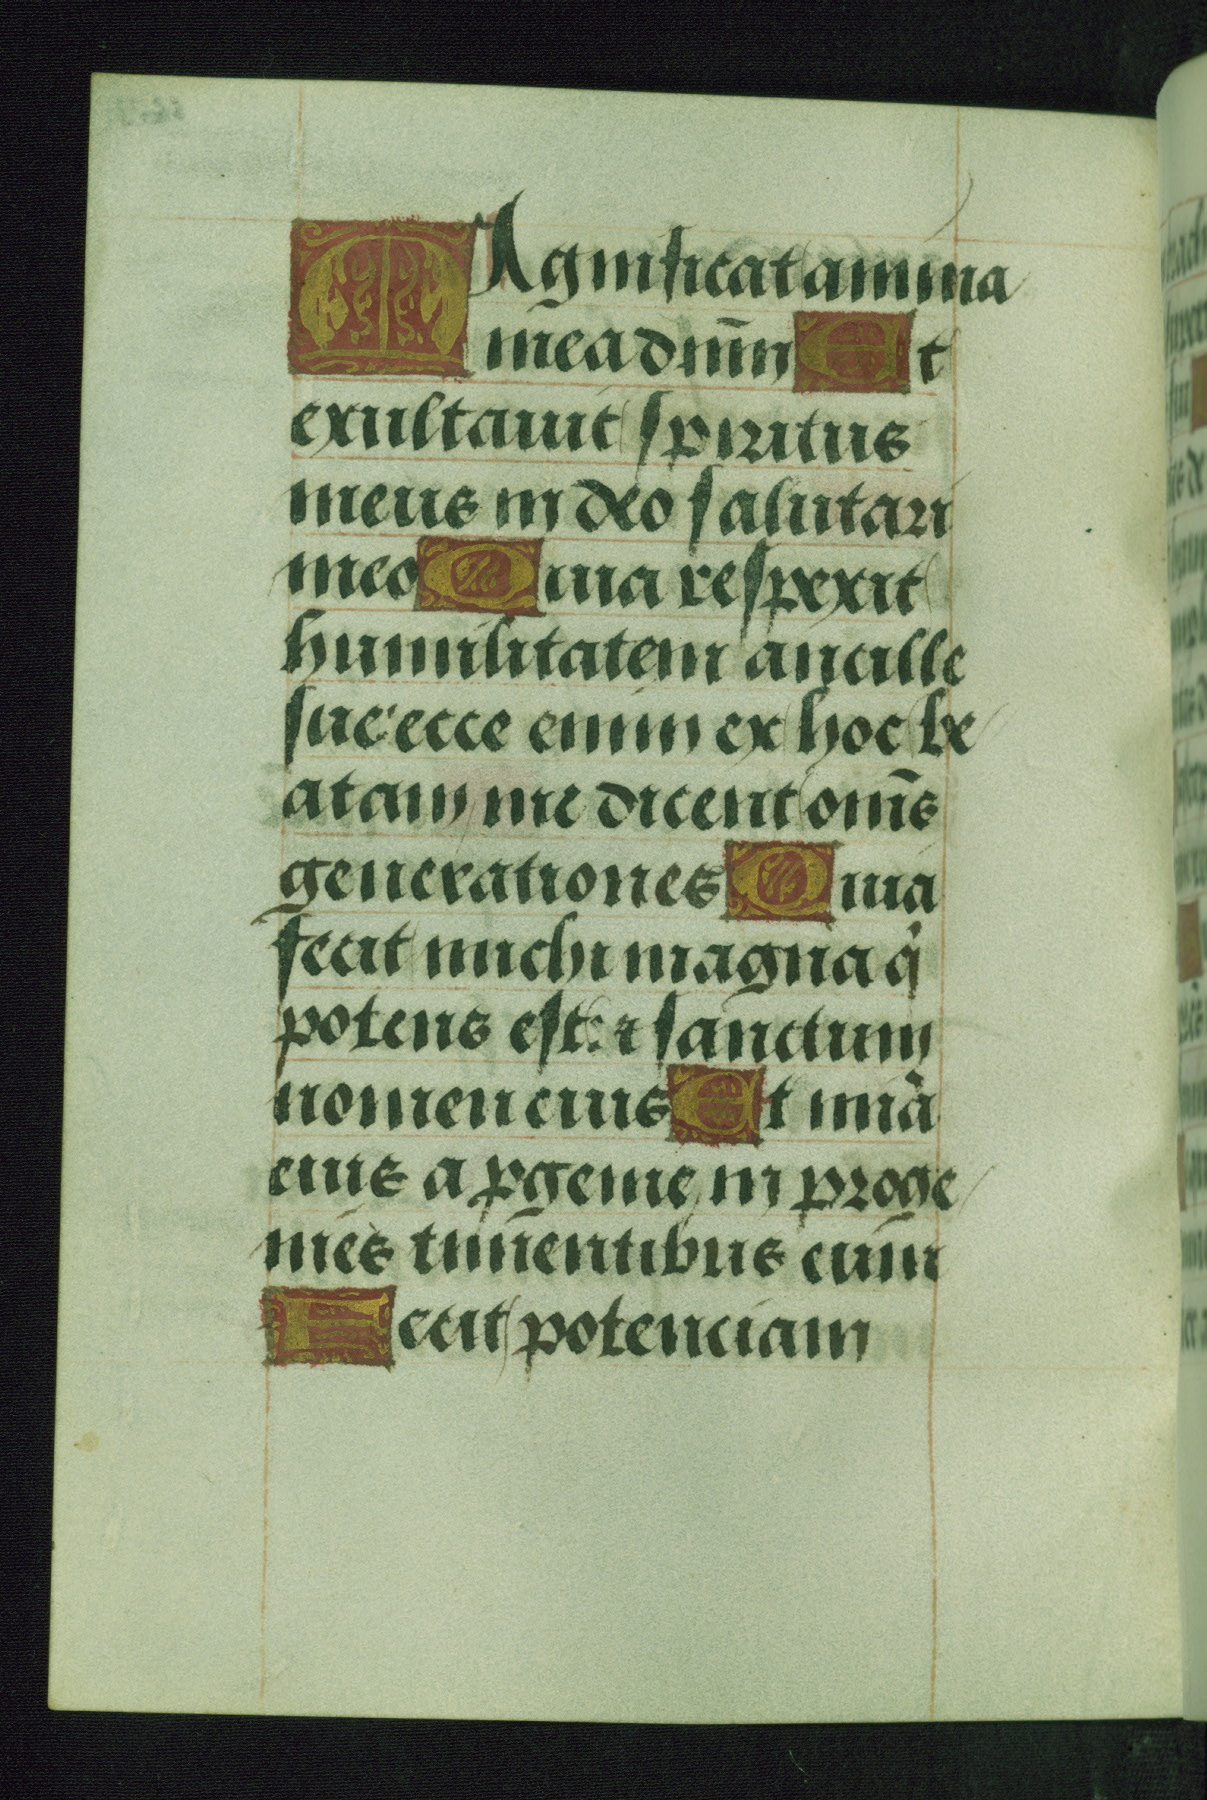 MAgnificat anima
mea dnm̄ Et
exultauit spiritus
meus in deo salutari
meo Quia respexit
humilitatem ancille
sue: ecce enim ex hoc be
atam me dicent om̄s
generationes Quia
fecit michi magna qͥ
potens est: ⁊ sanctum
nomen eius Et mīa
eius a ꝓgenie in proge
nies timentibus eum
Fecit potenciam